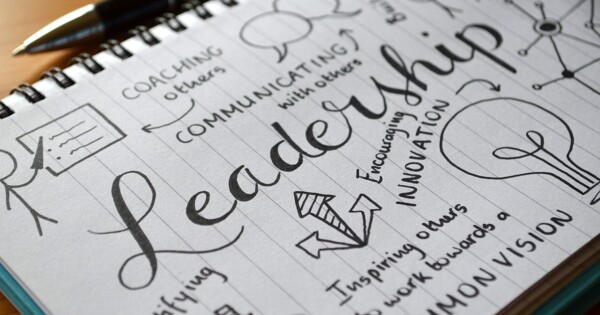 COACHING
others
COMMUNICATING
with others
Leadership
Encouraging
INNOVATION
Inspiring others
work towards a
VISION